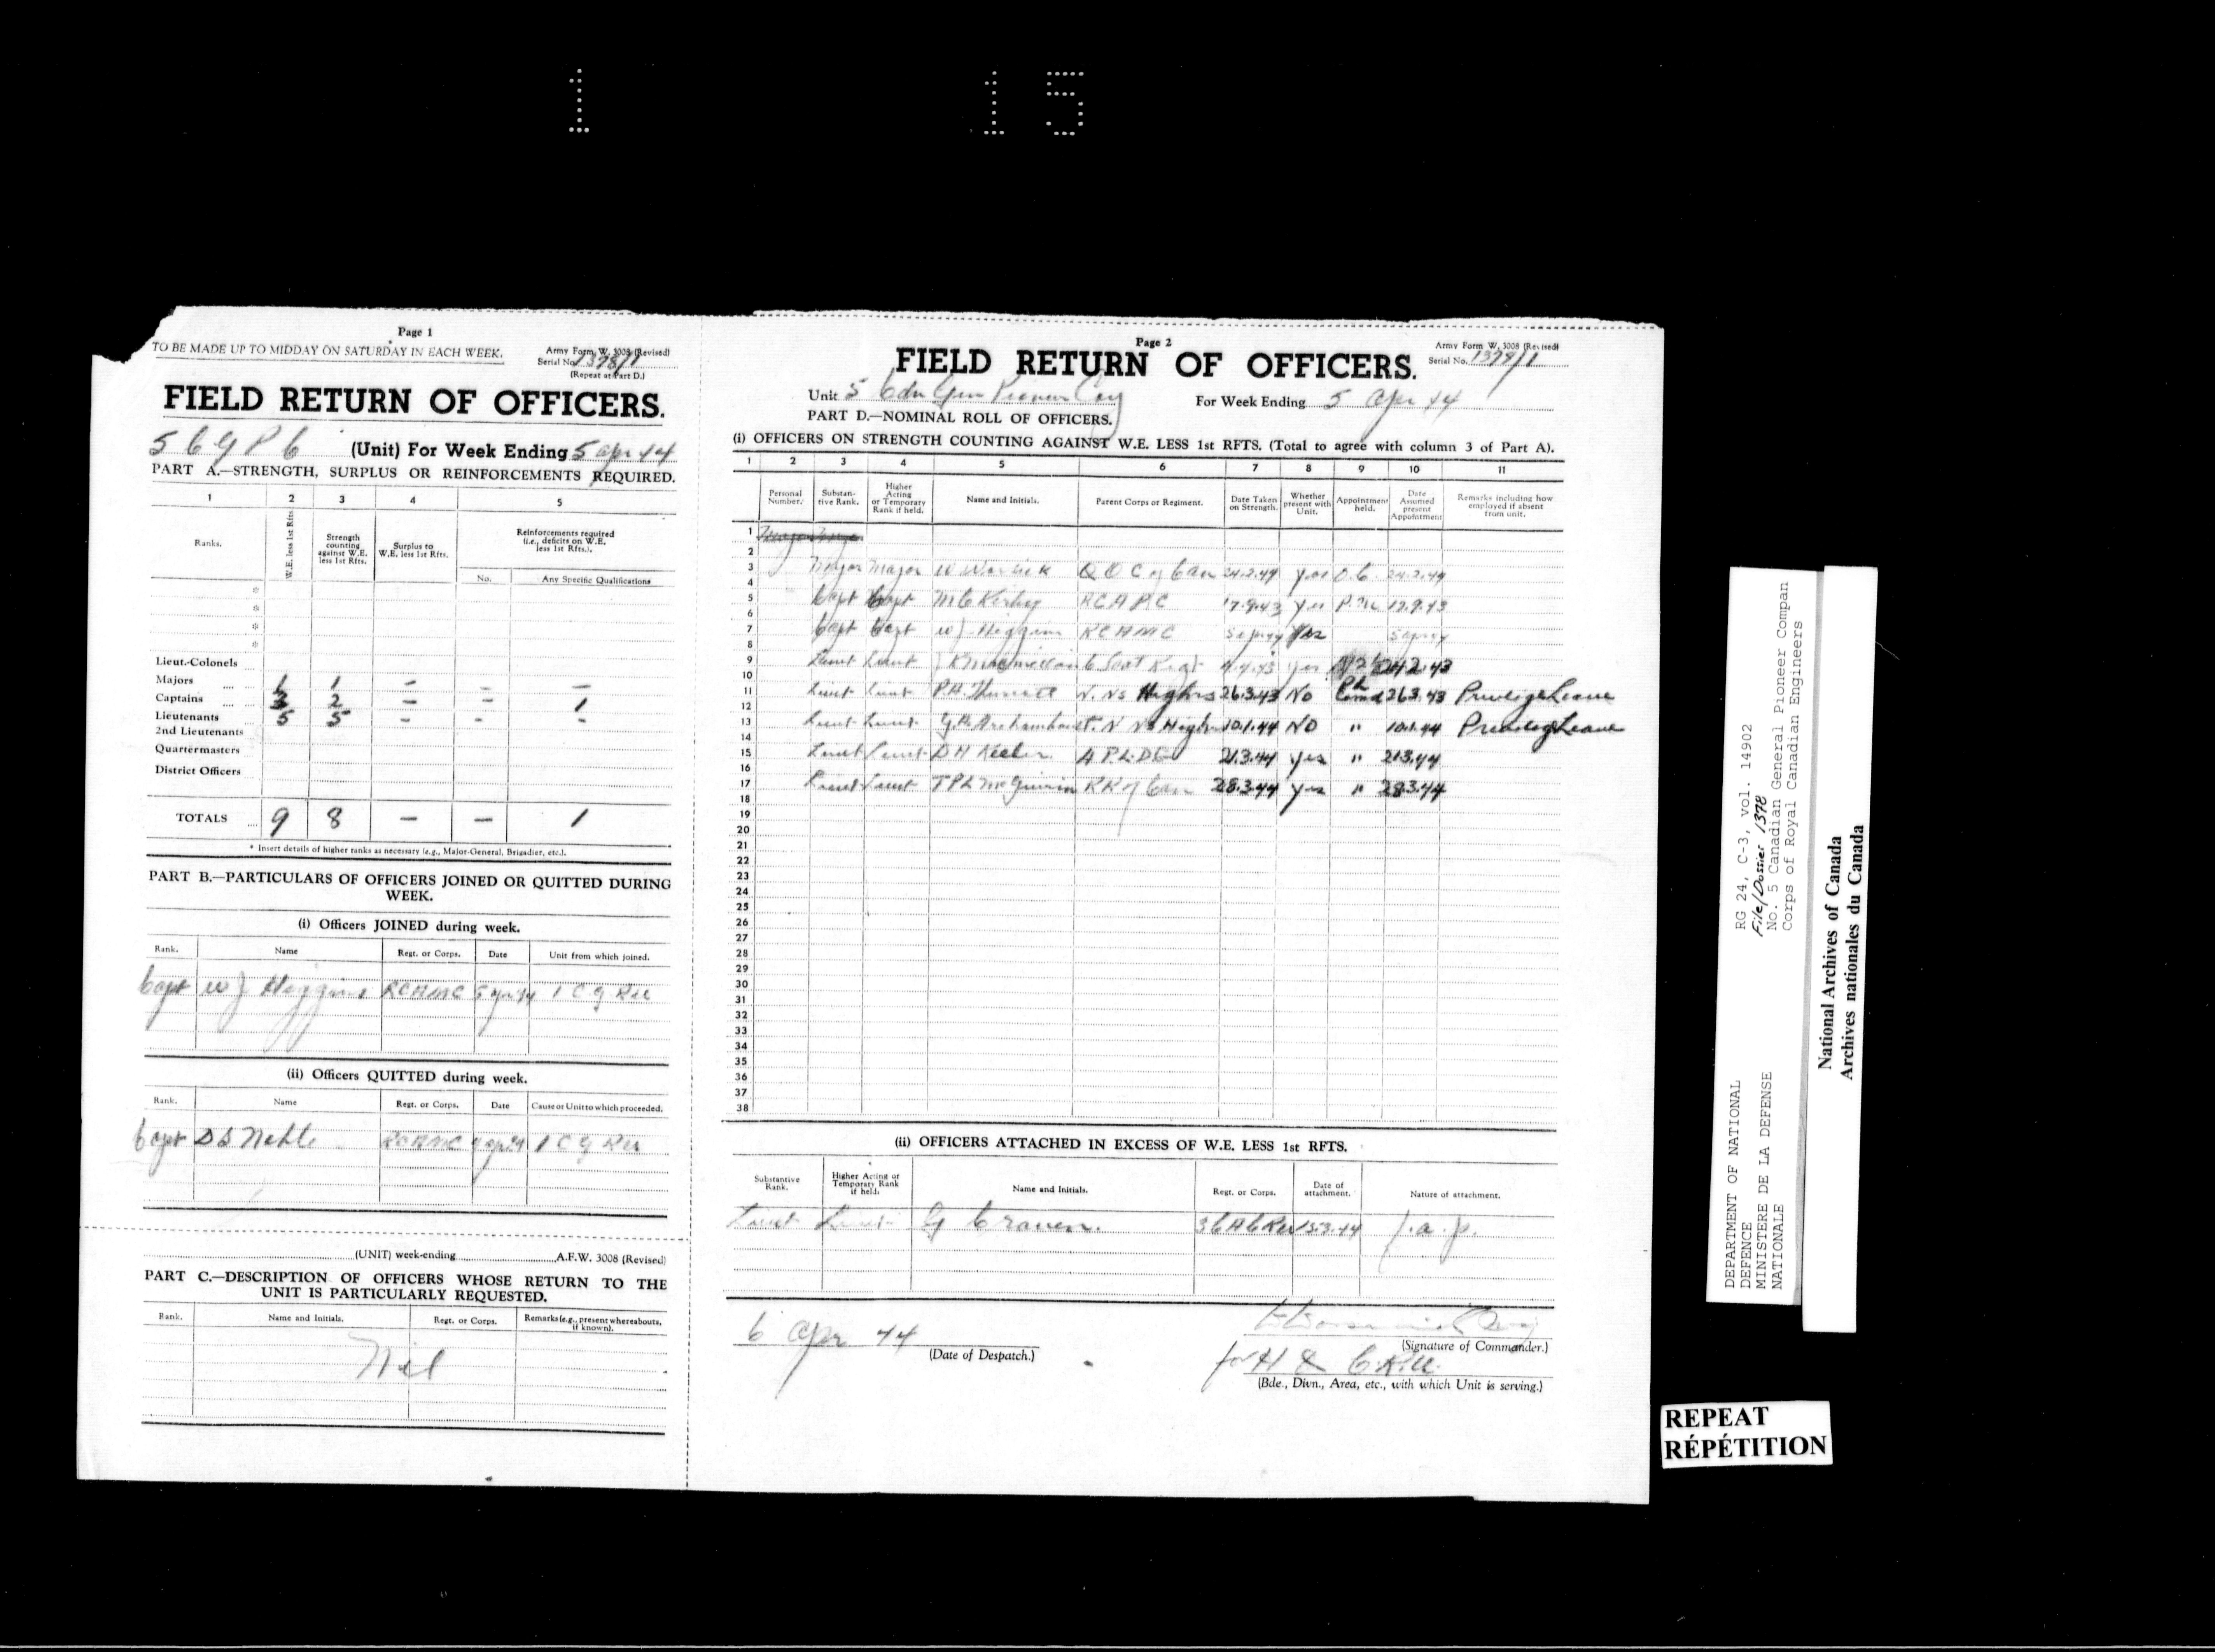 1 15
Page 1
TO BE MADE UP TO MIDDAY ON SATURDAY IN EACH WEEK.
Army Form W. 3008 (Revised)
Serial No. 1378/1
(Repeat at Part D.)
FIELD RETURN OF OFFICERS.
5 C G P C (Unit) For Week Ending 5 Apr 44
PART A.—STRENGTH, SURPLUS OR REINFORCEMENTS REQUIRED.
1 2 3 4 5
Ranks. W.E. less 1st Rfts. Strength counting against W.E. less 1st Rfts. Surplus to W.E. less 1st Rfts. Reinforcements required (i.e., deficits on W.E. less 1st Rfts.).
No. Any Specific Qualifications
*
*
*
*
Lieut.-Colonels
Majors .... .... 1 1 — — —
Captains .... .... 3 2 — — 1
Lieutenants 5 5 - - -
2nd Lieutenants
Quartermasters
District Officers
TOTALS .... 9 8 — — 1
* Insert details of higher ranks as necessary (e.g., Major-General, Brigadier, etc.).
PART B.—PARTICULARS OF OFFICERS JOINED OR QUITTED DURING
WEEK.
(i) Officers JOINED during week.
Rank. Name Regt. or Corps. Date Unit from which joined.
Capt W J Heggins RCAMC 5 Apr 44 1 C G RU
(ii) Officers QUITTED during week.
Rank. Name Regt. or Corps. Date Cause or Unit to which proceeded.
Capt D S RCAMC 1 C G RU
(UNIT) week-ending A.F.W. 3008 (Revised)
PART C.—DESCRIPTION OF OFFICERS WHOSE RETURN TO THE
UNIT IS PARTICULARLY REQUESTED.
Rank. Name and Initials. Regt. or Corps. Remarks (e.g., present whereabouts, if known).
Nil
Page 2
Army Form W. 3008 (Revised)
FIELD RETURN OF OFFICERS.
Serial No. 1378/1
Unit 5 Cdn Gen Pioneer Coy For Week Ending 5 Apr 44
PART D.—NOMINAL ROLL OF OFFICERS.
(i) OFFICERS ON STRENGTH COUNTING AGAINST W.E. LESS 1st RFTS. (Total to agree with column 3 of Part A).
1 2 3 4 5 6 7 8 9 10 11
Personal Number. Substantive Rank. Higher Acting or Temporary Rank if held. Name and Initials. Parent Corps or Regiment. Date Taken on Strength. Whether present with Unit. Appointment held. Date Assumed present Appointment Remarks including how employed if absent from unit.
1
2
3 Major Major W Q O C of Can 24.2.44 yes O.C. 24.2.44
4
5 Capt Capt M C Kerby RCAPC 17.9.43 yes P.M. 17.9.43
6
7 Capt Capt W J Heggins RCAMC 5 Apr 44 Yes 5 Apr 44
8
9 Lieut Lieut C Scot Regt yes
10
11 Lieut Lieut P.A. N. NS Highrs 26.3.43 NO Pl Comd 26.3.43 Privilege Leave
12
13 Lieut Lieut N NS Highrs 10.1.44 NO " 10.1.44 Privilege Leave
14
15 Lieut Lieut D H Keeler 21.3.44 yes " 21.3.44
16
17 Lieut Lieut T P L McGuinnin RR of Can 28.3.44 yes " 28.3.44
18
19
20
21
22
23
24
25
26
27
28
29
30
31
32
33
34
35
36
37
38
(ii) OFFICERS ATTACHED IN EXCESS OF W.E. LESS 1st RFTS.
Substantive Rank. Higher Acting or Temporary Rank if held. Name and Initials. Regt. or Corps. Date of attachment. Nature of attachment.
Lieut Lieut G Craven. 3 C A C RU 15.3.44 f.a.p.
6 Apr 44
(Date of Despatch.)
(Signature of Commander.)
for H & C.R.U.
(Bde., Divn., Area, etc., with which Unit is serving.)
DEPARTMENT OF NATIONAL
DEFENCE
MINISTERE DE LA DEFENSE
NATIONALE
RG 24, C-3, vol. 14902
File/Dossier 1378
No. 5 Canadian General Pioneer Compan
Corps of Royal Canadian Engineers
National Archives of Canada
Archives nationales du Canada
REPEAT
RÉPÉTITION